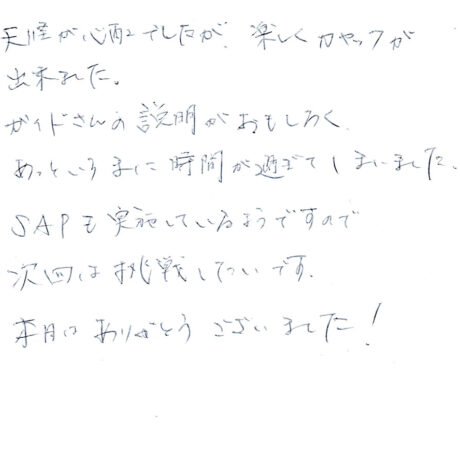 天候が心配でしたが、楽しくカヤックが
出来ました。
ガイドさんの説明がおもしろく、
あっというまに時間が過ぎてしまいました。
SAPも実施しているようですので
次回は挑戦したいです。
本日はありがとうございました!